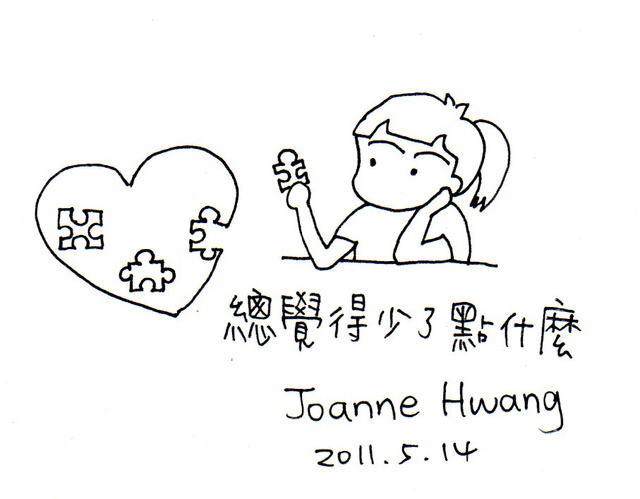 總覺得少了點什麼
Joanne Hwang
2011.5.14